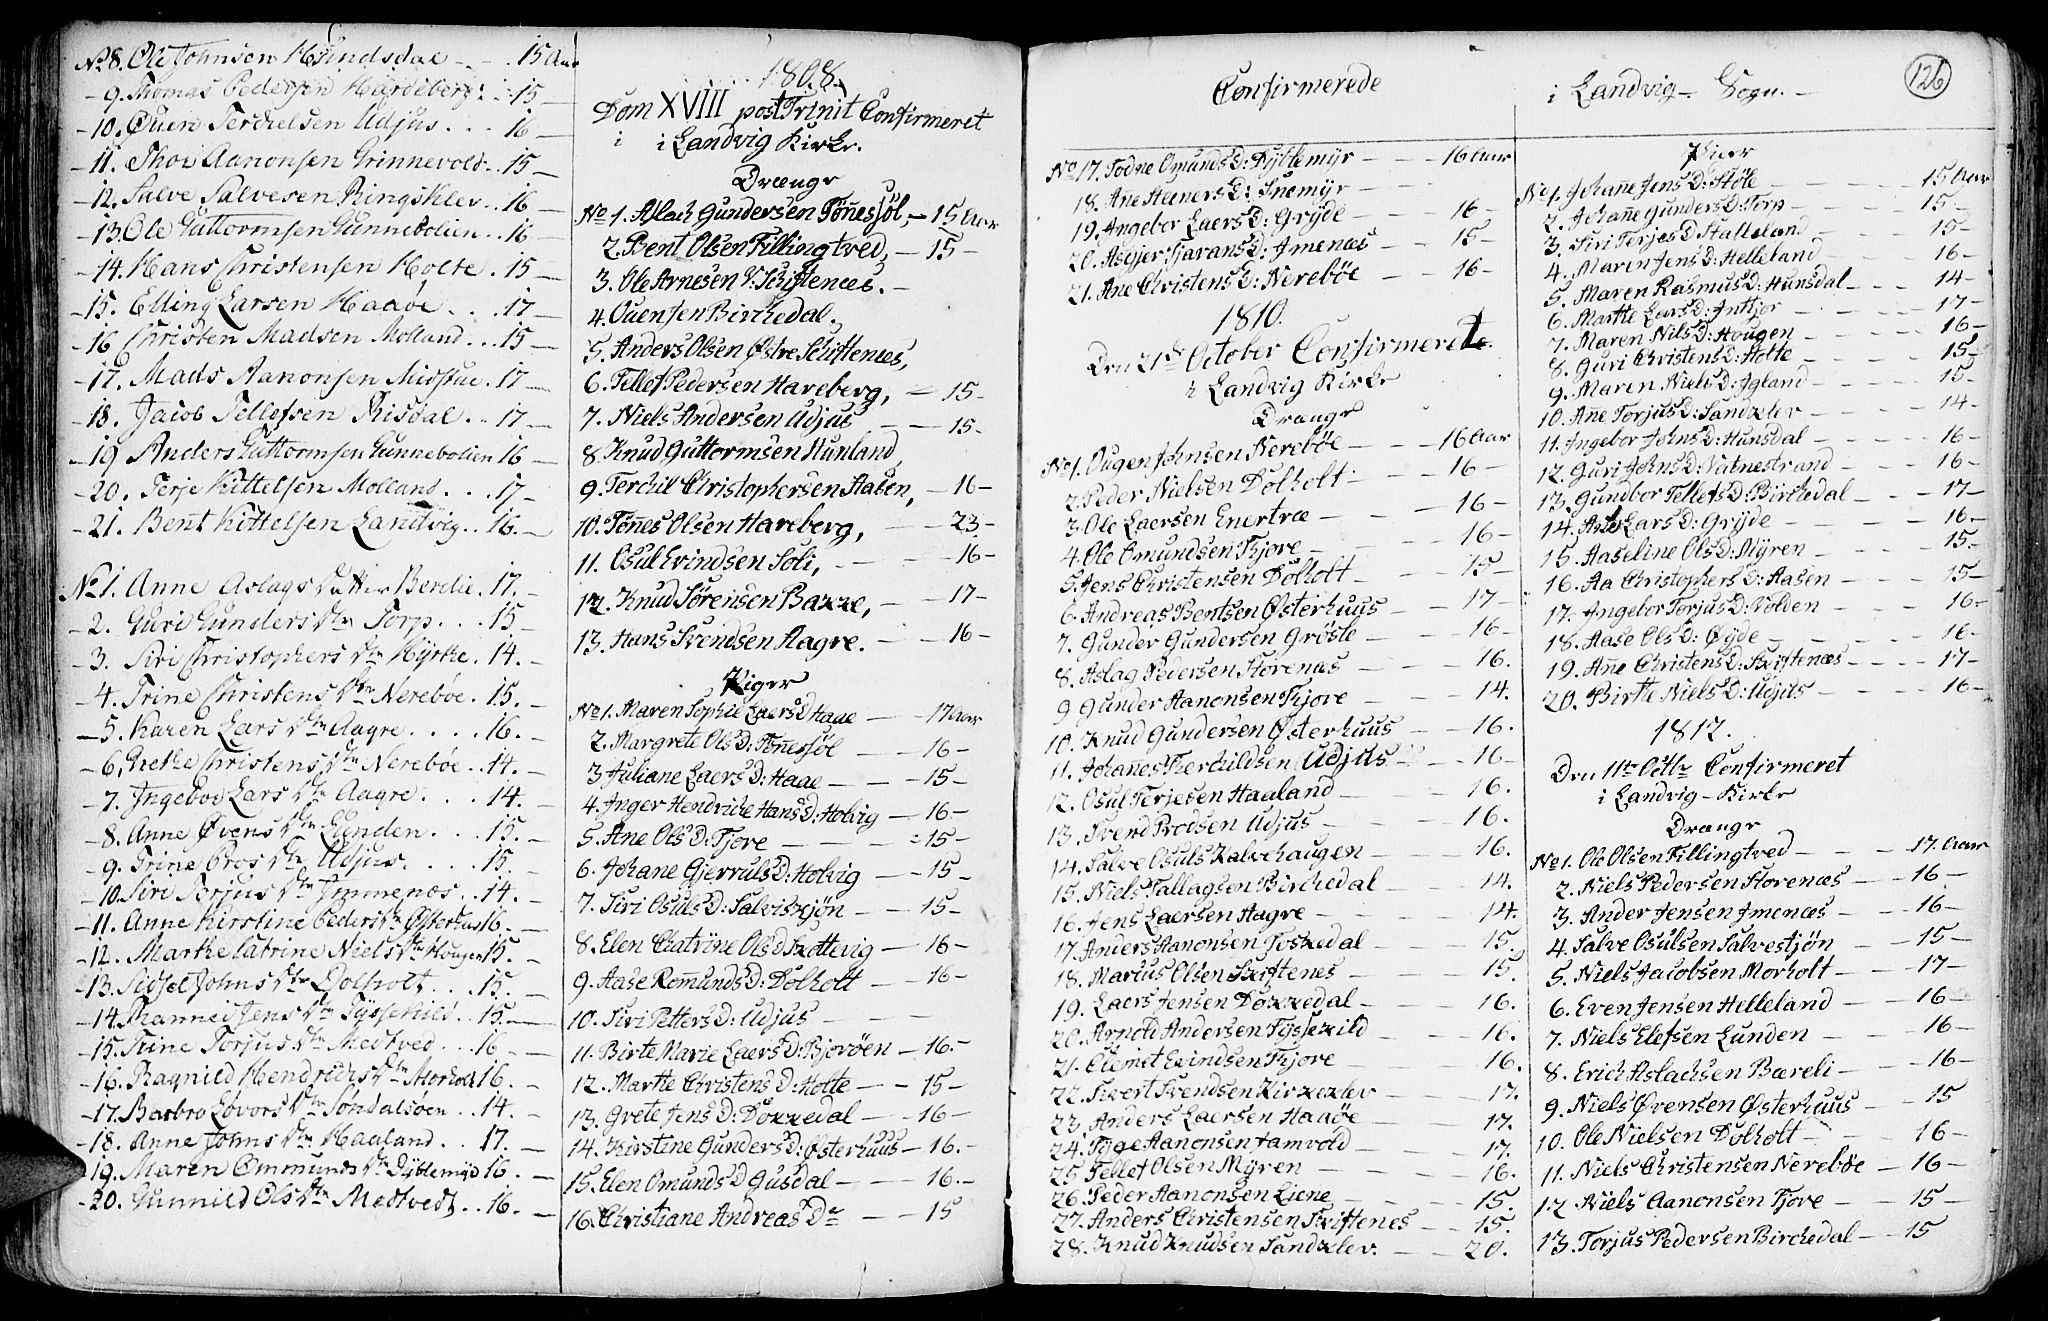 No 8. Ole Johnsen Hundsdal - . - 15 Aar
- 9. Thomas Pedersen Hardeberg . - 15 -
- 10. Øuen Terchelsen Udjus . . . 16 -
- 11. Thor Aanonsen Grinnevold - 15 -
- 12. Salve Salvesen Ringsklev . . 16 -
- 13. Ole Guttormsen Gunnebolien . 16 -
- 14. Hans Christensen Holte . 15 -
- 15. Elling Larsen Haaøe . . . 17 -
- 16 Christen Madsen Molland . . . 15 -
- 17. Mads Aanonsen Midstue . 17 -
- 18. Jacob Tellefsen Risdal . . 17 -
- 19 Anders Guttormsen Gunnebolien 16 -
- 20. Terje Kittelsen Molland . . . 17 -
- 21. Bent Kittelsen Landvig . . 16. -
No 1. Anne Aslags Datter Berdie . 17. -
- 2. Guri Gunders Dtr Torp . . . 15 -
- 3. Siri Christophers Dtr Hyrke . 14. -
- 4. Trine Christens Dtr Nerebøe . 15. -
- 5. Karen Lars Dtr Aagre . . . . 16. -
- 6. Grethe Christens Dtr Nerebøe . . 14. -
- 7. Ingebor Lars Dtr Aagre . . . 14. -
- 8. Anne Øvens Dtr Lunden . . . 15. -
- 9. Trine Bros Dtr Udjus . . . . 15. -
- 10. Siri Torjus Dtr Immenæs . . 14. -
- 11. Anne Kirstine Peders Dtr Østerhus 16. -
- 12. Marthe Catrine Niels Dtr Hougen 15. -
- 13. Sidsel Johns Dtr Dolholt . . . 15. -
- 14. Ranneid Jens Dtr Tyssekild . 15. -
- 15. Trine Torjus Dtr Medtved . . 16 -
- 16. Ragnild Hendrichs Dtr Morholt 16. -
- 17. Barbro Lovors Dtr Søndalsøen . . 14. -
- 18. Anne Johns Dtr Haaland . . 17. -
- 19. Maren Ommunds Dtr Dyblemyr 16. -
- 20. Gunnild Ols Dtr Medtvedt . . 16. -
1808.
Dom XVIII post Trinit Confirmeret
i i Landvig Kirke.
Drænge
No 1. Aslach Gundersen Tönnessöl, - 15 Aar
2. Bent Olsen Fillingtved, - 15 -
3. Ole Arnesen V: Schiftenæs. -
4. Ouensen Birchedal.
5. Anders Olsen Østre Schiftenæs,
6. Tellef Pedersen Hareberg, - 15 -
7. Niels Andersen Udjus - - 15 -
8. Knud Guttormsen Hunland,
9. Terchil Christophersen Aasen, - 16 -
10. Tönnes Olsen Hareberg, - - 23 -
11. Osul Evindsen Soli, - - - 16 -
12. Knud Sörensen Baxxe, - - 17 -
13. Hans Svendsen Aagre. - - 16 -
Piger
No 1. Maren Sophie Laers D Haae - - 17 Aar
2. Margrete Ols D: Tönnessöl - - 16 -
3 Juliane Laers D: Haae - - - 15 -
4. Inger Hendriche Hans D: Holvig - 16 -
5. Ane Ols D: Fjore - - - - 15 -
6. Johane Gjerruls D: Holvig - - 15 -
7. Siri Osuls D: Salvistjön - - 15 -
8. Elen Chatrine Ols D Kottevig - 16 -
9. Aase Romunds D: Dolholt - 16 -
10. Siri Petters D: Udjus - - -
11. Birte Marie Laers D: Bjoröen - 16. -
12. Marthe Christens D: Holte - - 15 -
13. Grete Jens D: Doxxedal - - 16 -
14. Kirstine Gunders D: Østerhuus - 16. -
15. Elen Omunds D Gusdal - - - 16. -
16. Christiane Andreas Dr - - 15
126
Confirmerede i Landvig - Sogn. -
No 17. Todne Omunds D: Dyblemyr - - - 16 Aar
18. Ane Steeners D: Snemyr - - -
19. Angebor Laers D: Gryde - - - 16 -
20. Asgjer Tarans D: Imenæs - - 15 -
21. Ane Christens D: Nereböe - - 16 -
1810.
Den 21de October Confirmerede.
i Landvig Kirke
Drænge
No 1. Ougen Johnsen Nereböe - - - 16 Aar
2. Peder Nielsen Dolholt - - - 16 -
3. Ole Laersen Enertræ - - - 16 -
4. Ole Omundsen Fjore - - - 16 -
5. Jens Christensen Dolholt - - 15 -
6. Andreas Bentsen Østerhuus - - 17 -
7. Gunder Gundersen Grösle - - 16 -
8. Aslag Pedersen Storenæs - - - 16.
9 Gunder Aanonsen Fjore - - - 14.
10. Knud Gundersen Østerhuus - - 16.
11. Johanes Therchildsen Udjus - - 16 -
12. Osul Terjesen Haaland - - - 16.
13. Svend Brodsen Udjus - - - 16.
14. Salve Osuls Kalvehaugen - - 16.
15. Niels Tallagsen Birchedal - - 14.
16. Jens Laersen Aagre - - - 14.
17. Anders Aanonsen Foskedal - - 15.
18. Marcus Olsen Skiftenes - - - 15.
19. Laers Jensen Doxxedal - - - 16.
20. Arnold Andersen Tyssexild - - 16.
21. Clemet Evindsen Fjore - - - 16.
22. Sivert Svendsen Kirxexlev - - 17.
23. Anders Laersen Haaöe - - - 17.
24. Tyge Aanonsen Jamvold - - - 17.
25 Tellef Olsen Myren - - - 16.
26. Peder Aanonsen Liene - - - 15.
27. Anders Christensen Skiftenes - - 15.
28. Knud Knudsen Sandxlev. - - 20.
Piger
No 1. Johane Jens D: Stöle - - - - 15 Aar
2. Johane Gunders D: Torp - - - 15 -
3. Siri Terjes D Stalleland - - - 15 -
4. Maren Jens D: Helleland - - - 16 -
5. Maren Rasmus D: Hunsdal - - - 14 -
6. Marthe Lars D: Inthjor - - - 17 -
7. Maren Nils D: Hougen - - - 16 -
8. Guri Christens D: Holte - - - 15 -
9. Maren Niels D: Igland - - - 15 -
10. Ane Torjus D: Sandxlev - - - 14 -
11. Ingebor Johns D: Hunsdal - - - 16 -
12. Guri Johns D: Vatnestrand - - - 16 -
13. Gunebor Tellefs D: Birchedal - - - 17 -
14. Ane Lars D: Gryde - - - 16. -
15. Aaseline Ols D: Myren - - - 15 -
16. Aa Christophers D: Aasen - - - 15 -
17. Angebor Torjus D: Volden - - - 16 -
18. Aase Ols D: Øyde - - - 16 -
19. Ane Christens D: Skiftenæs - - - 17 -
20. Birthe Niels D: Udjus - - - 16 -
1812.
Den 11te Octbr Confirmeret
i Landvig - Kirke
Drænge
No 1. Ole Olsen Fillingtved - - - 17. Aar
2. Niels Pedersen Storenæs - - 16 -
3. Ander Jensen Imenæs - - - 16 -
4. Salve Osulsen Salvestjön - - 15 -
5. Niels Jacobsen Morholt - - 17 -
6. Even Jensen Helleland - - 16 -
7. Niels Elefsen Lunden - - - 16 -
8. Erich Aslachsen Bæreli - - - 16 -
9. Niels Øvensen Østerhuus - - 15
10. Ole Nielsen Dolholt - - - 16 -
11. Niels Christensen Nereböe - 16 -
12 Niels Aanonsen Fjore - - 15 -
13. Torjus Pedersen Birchedal - - 15